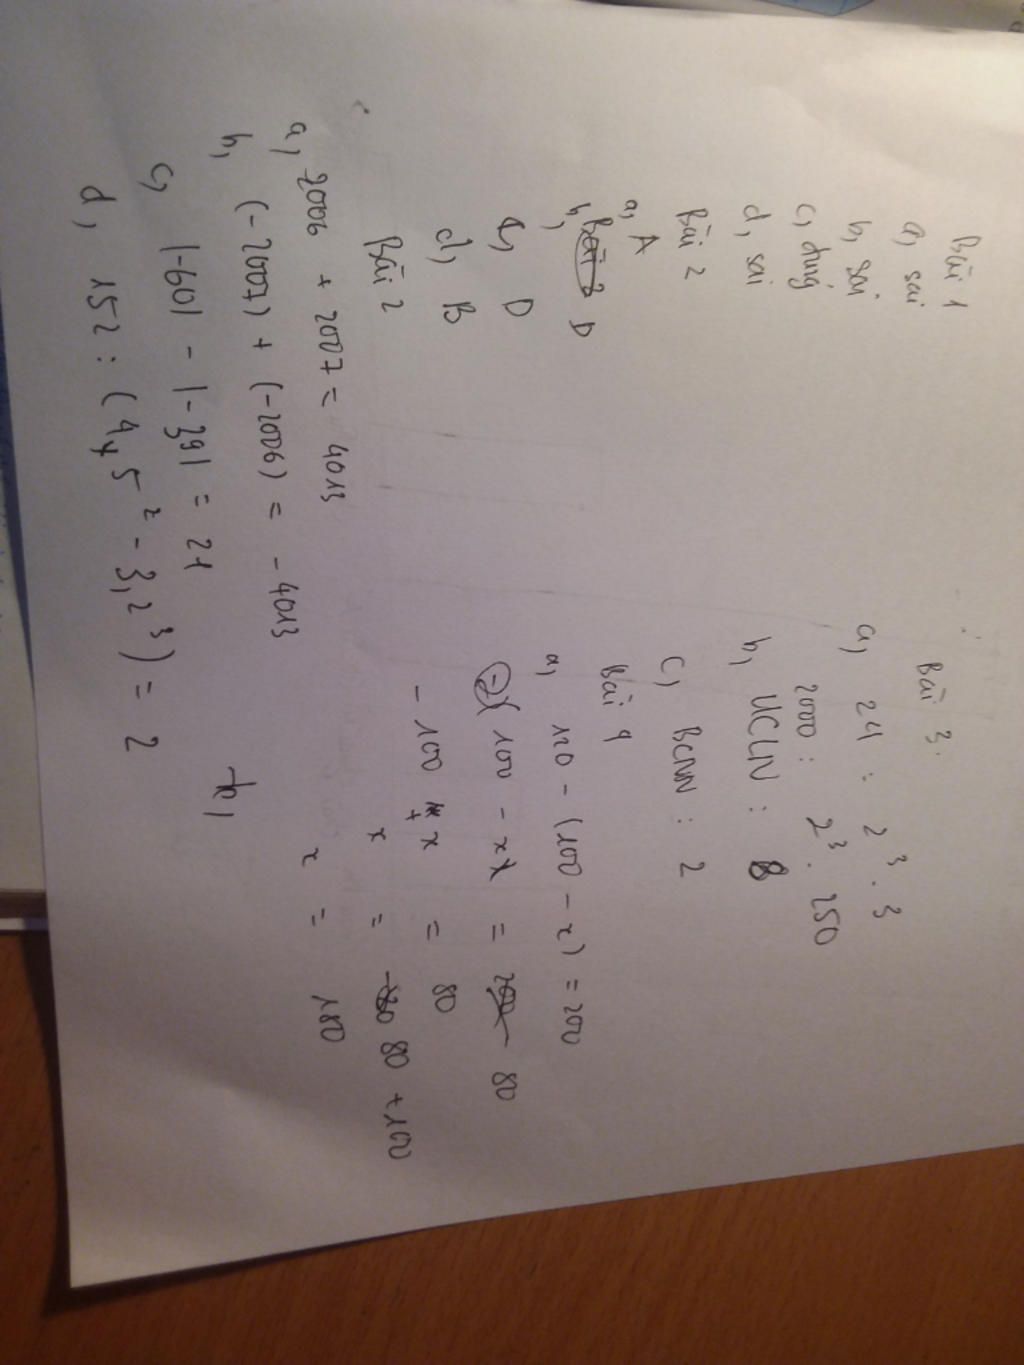 Bài 1
a, sai
b, sai
c, đúng
d, sai
Bài 2
a, A
b, D
c, D
d, B
Bài 2
a, 2006 + 2007 = 4013
b, (-2007) + (-2006) = -4013
c, |-60| - |-39| = 21
d, 152 : (4,5² - 3,2³) = 2
Bài 3.
a, 24 : 2³ . 3
2000 : 2³ . 250
b, UCLN : 8
c, BCNN : 2
Bài 4
a, 120 - (100 - x) = 200
-(100 - x) = 80
- 100 + x = 80
x = 80 + 100
x = 180